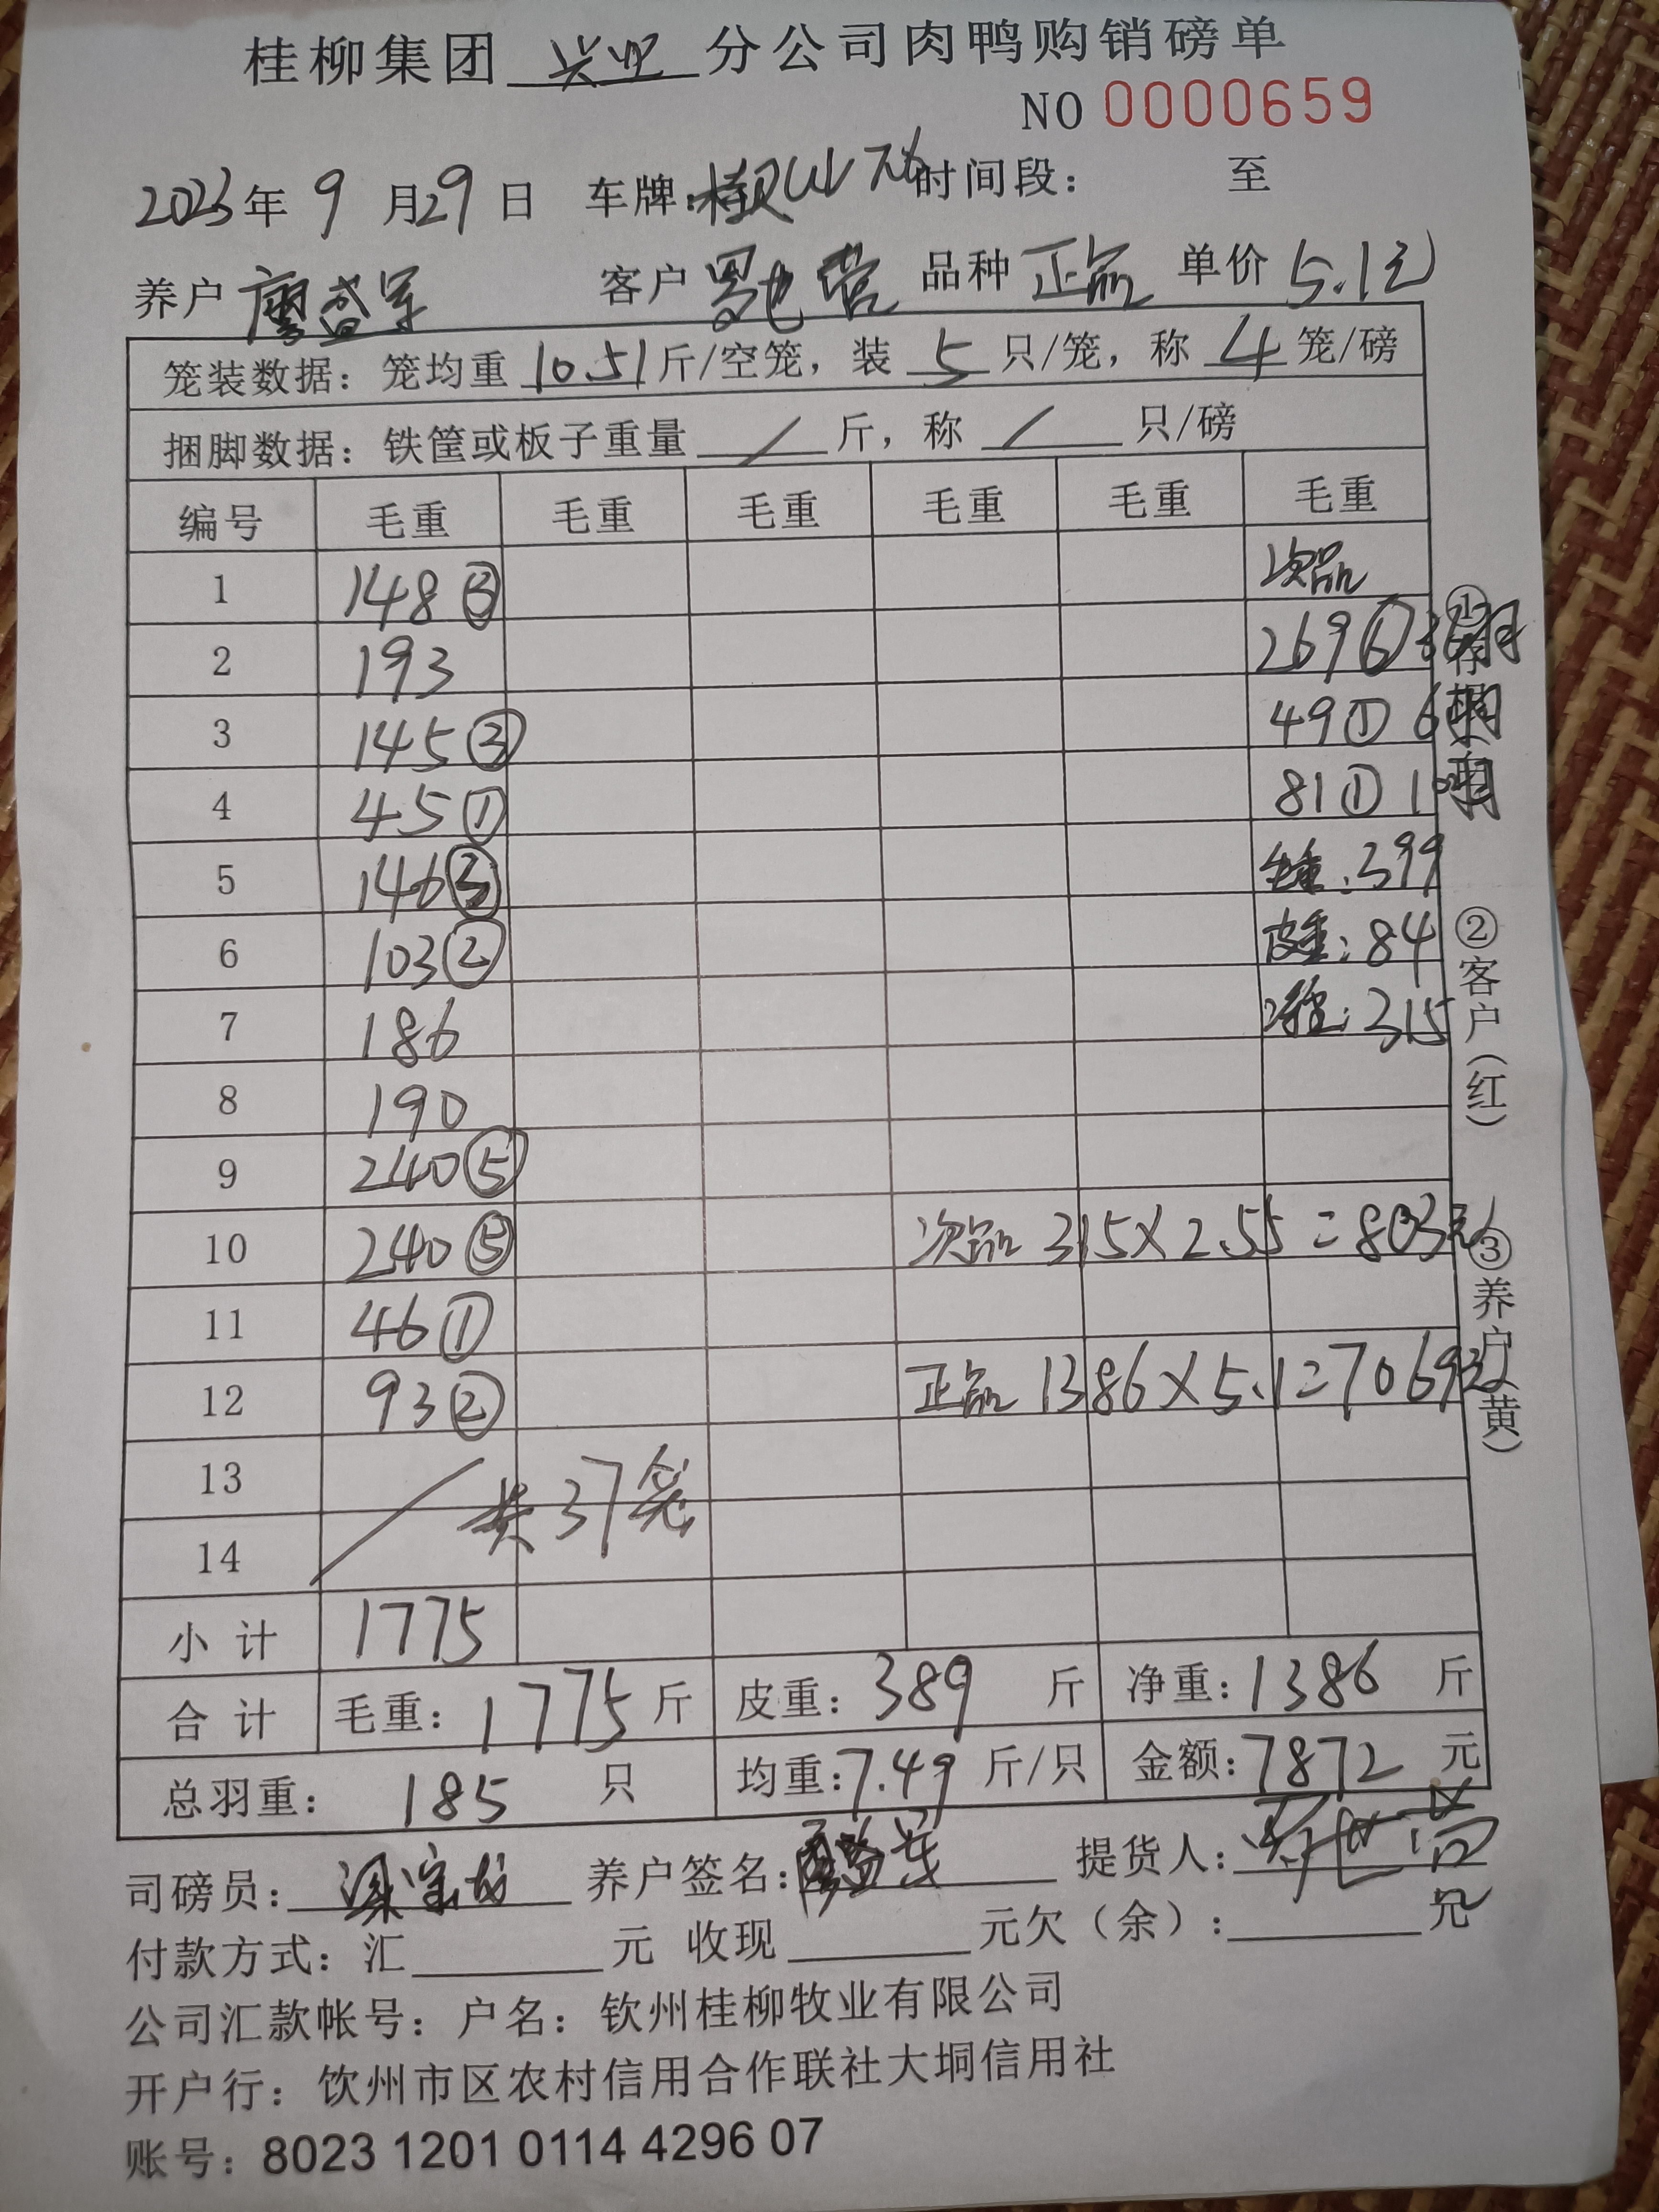 桂柳集团 兴业 分公司肉鸭购销磅单
NO 0000659
2023年 9 月29日 车牌: 时间段: 至
养户 廖益军 客户 品种 正品 单价 5.1元
笼装数据: 笼均重 10.51斤/空笼, 装 5 只/笼, 称 4 笼/磅
捆脚数据: 铁筐或板子重量 / 斤, 称 / 只/磅
编号 毛重 毛重 毛重 毛重 毛重 毛重
1 148③ 次品
2 193 269⑥
3 145③ 49① 6
4 45① 81① 10
5 146③ 毛重:399
6 103② 皮重:84
7 186 净重:315
8 190
9 240⑤
10 240⑤ 次品 315×2.55=803元
11 46①
12 93② 正品 1386×5.1=7069元
13 / 共37笼
14
小 计 1775
合 计 毛重: 1775斤 皮重: 389 斤 净重: 1386 斤
总羽重: 185 只 均重: 7.49 斤/只 金额: 7872 元
司磅员: 养户签名: 廖益军 提货人:
付款方式: 汇 元 收现 元欠(余): 元
公司汇款帐号: 户名: 钦州桂柳牧业有限公司
开户行: 饮州市区农村信用合作联社大垌信用社
账号: 8023 1201 0114 4296 07
①存根(白)
②客户(红)
③养户(黄)